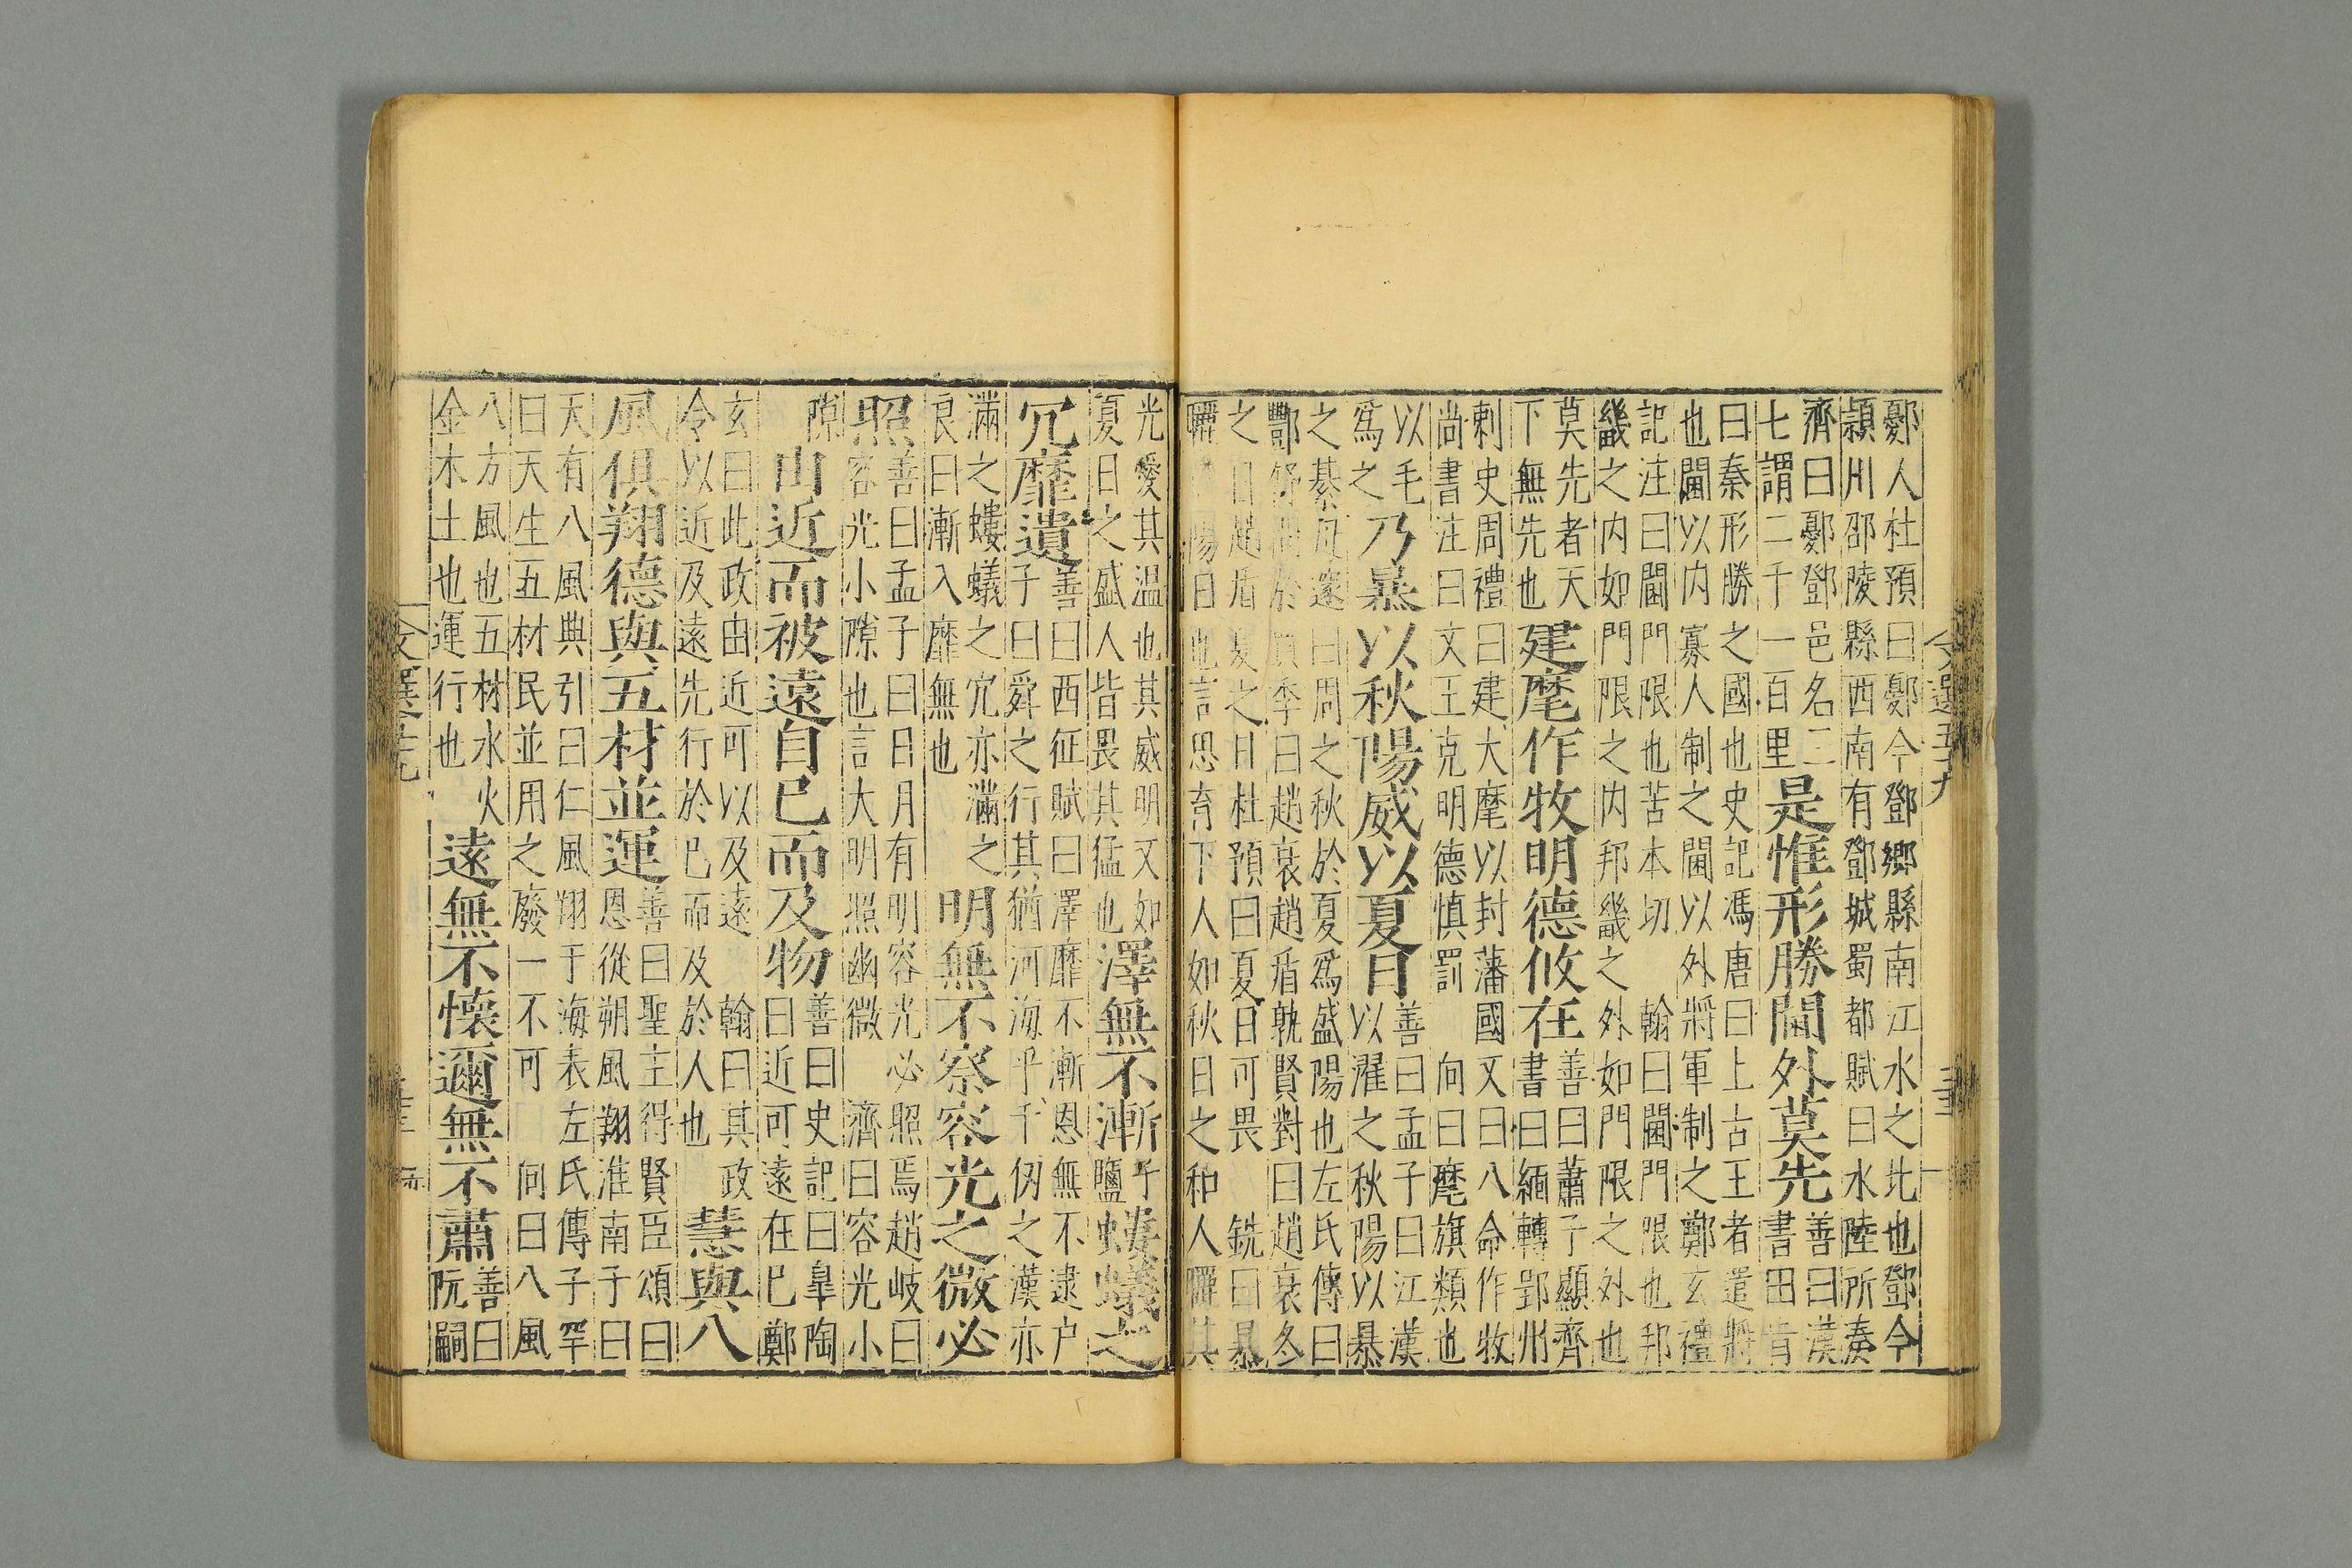 鄾人杜預曰鄾今鄧鄉縣南江水之北也鄧今
潁川邵陵縣西南有鄧城蜀都賦曰水陸所湊
齊曰鄾鄧邑名二
七謂二千一百里
是惟形勝閫外莫先
善曰漢
書田肯
曰秦形勝之國也史記馮唐曰上古王者遣將
也閫以內寡人制之閫以外將軍制之鄭玄禮
記注曰閫門限也苦本切 翰曰閫門限也邦
畿之内如門限之内邦畿之外如門限之外也
莫先者天
下無先也
建麾作牧明德攸在
善曰蕭子顯齊
書曰緬轉郢州
刺史周禮曰建大麾以封藩國又曰八命作牧
尚書注曰文王克明德慎罰 向曰麾旗類也
以毛
爲之
乃暴以秋陽威以夏日
善曰孟子曰江漢
以濯之秋陽以暴
之綦毋邃曰周之秋於夏爲盛陽也左氏傳曰
酆舒問於賈季曰趙衰趙盾孰賢對曰趙衰冬
之日趙盾夏之日杜預曰夏日可畏 銑曰暴
曬陽日也言思育下人如秋日之和人曬其
光愛其温也其威明又如
夏日之盛人皆畏其猛也
澤無不漸
螻蟻之
穴靡遺
善曰西征賦曰澤靡不漸恩無不逮户
子曰舜之行其猶河海乎千仞之漢亦
滿之螻蟻之穴亦滿之
良曰漸入靡無也
明無不察容光之微必
照
善曰孟子曰日月有明容光必照焉趙岐曰
容光小隙也言大明照幽微 濟曰容光小
隙
由近而被遠自己而及物
善曰史記曰臯陶
曰近可遠在已鄭
玄曰此政由近可以及遠 翰曰其政
令以近及遠先行於已而及於人也
慧與八
風俱翔德與五材並運
善曰聖主得賢臣頌曰
恩從朔風翔淮南子曰
天有八風典引曰仁風翔于海表左氏傳子罕
曰天生五材民並用之廢一不可 向曰八風
八方風也五材水火
金木土也運行也
遠無不懷邇無不肅
善曰
阮嗣